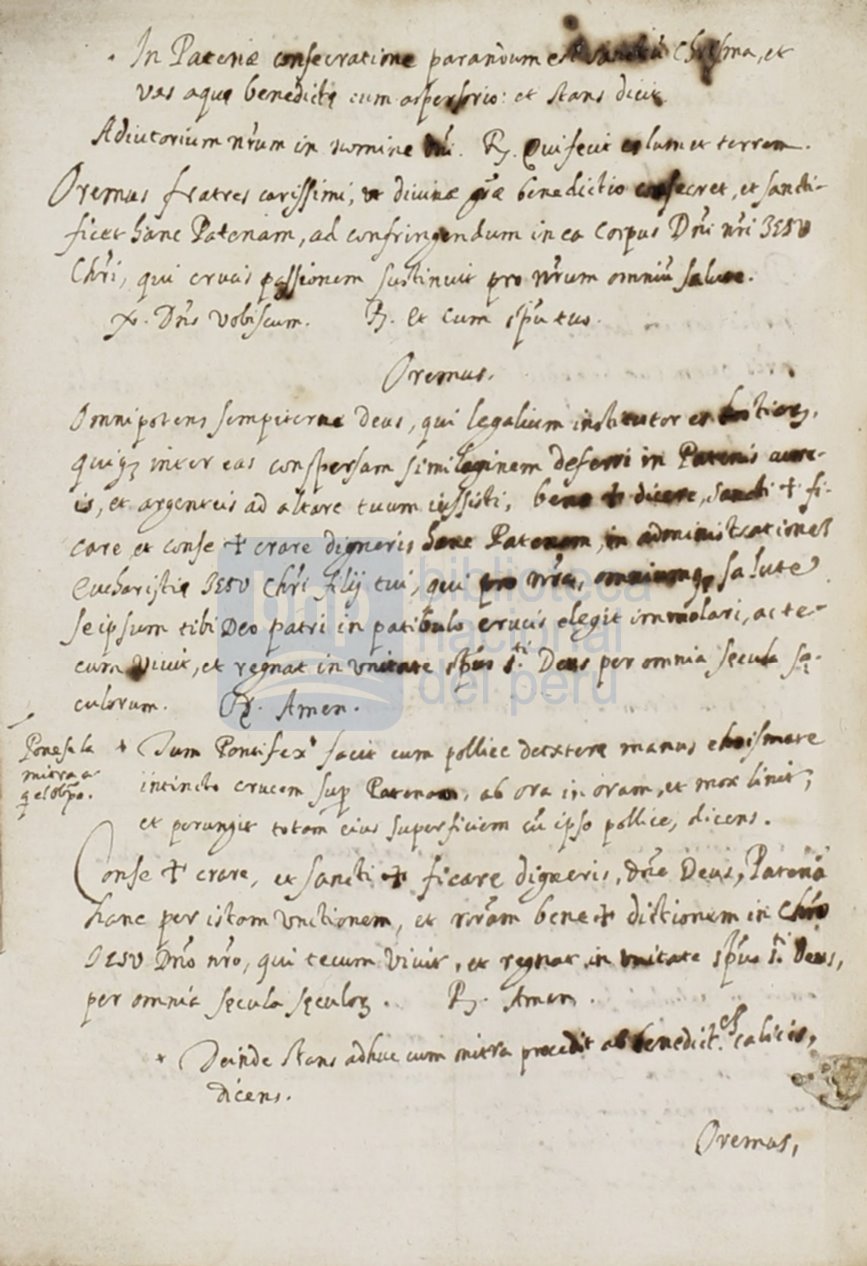 In Patenæ consecratione parandum est sanctũ Chrisma, et
vas aquę benedictę cum aspersorio: et stans dicit
Adiutorium nr̃um in nomine Dñi. ℟. Qui fecit cęlum et terram.
Oremus fratres carissimi, ut divinæ gr̃æ benedictio consecret, et sancti-
ficet hanc Patenam, ad confringendum in ea Corpus Dñi nr̃i IESV
Chr̃i, qui crucis passionem sustinuit pro nr̃um omniũ salute.
℣. Dñs vobiscum. ℟. Et cum spũ tuo.
Oremus.
Omnipotens sempiterne deus, qui legalium institutor es hostiarꝝ,
quiqꝫ inter eas conspersam similaginem deferri in Patenis aure-
is, et argenteis ad altare tuum iussisti, bene ✝ dicere, sancti ✝ fi-
care et conse ✝ crare digneris hanc Patenam, in administrationeʒ
Eucharistię IESV Chr̃i filij tui, qui pro nr̃a, omniumqꝫ salute
seipsum tibi Deo patri in patibulo crucis elegit immolari, ac te-
cum vivit, et regnat in vnitate spũs s.ti Deus per omnia secula sę-
culorum. ℟. Amen.
Ponese la
mitra a
q̃l obpo.
+ Tum Pontifex facit cum pollice dextere manus chrismate
intincto crucem sup̱ Patenam, ab ora in oram, et mox linit,
et perungit totam eius superficiem cũ ipso pollice, dicens.
Conse ✝ crare, et sancti ✝ ficare digneris, dñe Deus, Patenã
hanc per istam vnctionem, et nr̃am bene ✝ dictionem in Chr̃o
IESV Dño nr̃o, qui tecum vivit, et regnat in vnitate spũs s.ti Deus,
per omnia sęcula sęculoꝝ. ℟. Amen.
+ Deinde stans adhuc cum mitra procedit ad benedict.em calicis,
dicens.
Oremus,
bnp biblioteca
nacional
del perú